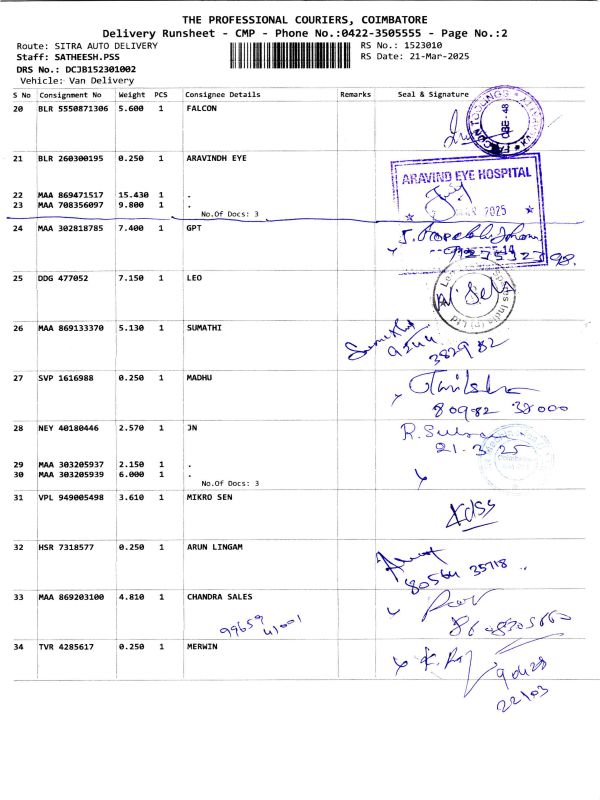 THE PROFESSIONAL COURIERS, COIMBATORE
Delivery Runsheet - CMP - Phone No.:0422-3505555 - Page No.:2
Route: SITRA AUTO DELIVERY RS No.: 1523010
Staff: SATHEESH.PSS RS Date: 21-Mar-2025
DRS No.: DCJB152301002
Vehicle: Van Delivery
S No Consignment No Weight PCS Consignee Details Remarks Seal & Signature
20 BLR 5550871306 5.600 1 FALCON
21 BLR 260300195 0.250 1 ARAVINDH EYE
ARAVIND EYE HOSPITAL
22 MAA 869471517 15.430 1 .
23 MAA 708356097 9.800 1 .
2025
No.Of Docs: 3
24 MAA 302818785 7.400 1 GPT
25 DDG 477052 7.150 1 LEO
26 MAA 869133370 5.130 1 SUMATHI
382982
27 SVP 1616988 0.250 1 MADHU
80982 38000
28 NEY 40180446 2.570 1 JN
21-3-25
29 MAA 303205937 2.150 1 .
30 MAA 303205939 6.000 1 .
No.Of Docs: 3
31 VPL 949005498 3.610 1 MIKRO SEN
32 HSR 7318577 0.250 1 ARUN LINGAM
80564 35718
33 MAA 869203100 4.810 1 CHANDRA SALES
99659
41001
34 TVR 4285617 0.250 1 MERWIN
22/03